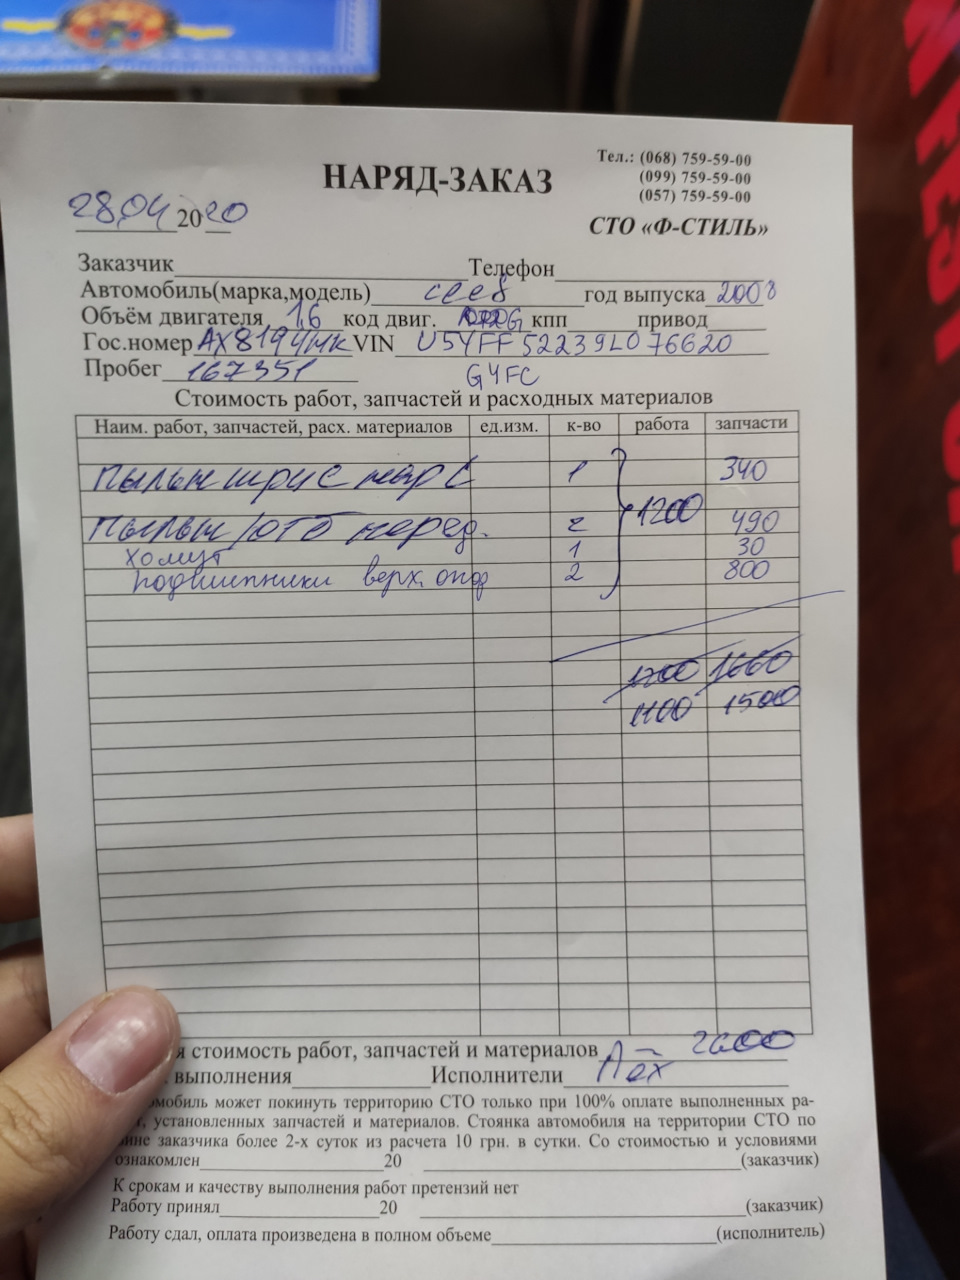 Тел.: (068) 759-59-00
НАРЯД-ЗАКАЗ (099) 759-59-00
(057) 759-59-00
28.04 2020
СТО «Ф-СТИЛЬ»
Заказчик Телефон
Автомобиль(марка,модель) ceed год выпуска 2008
Объём двигателя 1,6 код двиг. кпп привод
Гос.номер AX8194HK VIN U5YFF52239L076620
Пробег 167351 G4FC
Стоимость работ, запчастей и расходных материалов
Наим. работ, запчастей, расх. материалов ед.изм. к-во работа запчасти
пыльн шрус нар L 1 340
1200
пыльн/отб перед. 2 490
хомут 1 30
подшипники верх. опор 2 800
1200 1660
1100 1500
я стоимость работ, запчастей и материалов 2600
выполнения Исполнители
омобиль может покинуть территорию СТО только при 100% оплате выполненных ра-
, установленных запчастей и материалов. Стоянка автомобиля на территории СТО по
ине заказчика более 2-х суток из расчета 10 грн. в сутки. Со стоимостью и условиями
ознакомлен 20 (заказчик)
К срокам и качеству выполнения работ претензий нет
Работу принял 20 (заказчик)
Работу сдал, оплата произведена в полном объеме (исполнитель)